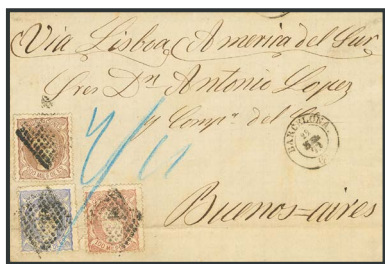 Via Lisboa America del Sur
Sres Dn Antonio Lopez
y Compª del
BARCELONA
Buenos=aires